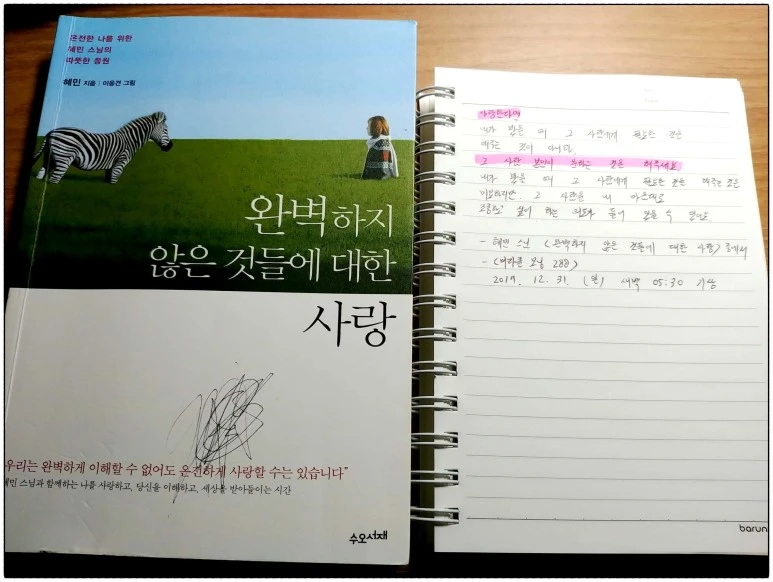 온전한 나를 위한
혜민 스님의
따뜻한 응원
혜민 지음 | 이응견 그림
완벽하지
않은 것들에 대한
사랑
우리는 완벽하게 이해할 수 없어도 온전하게 사랑할 수는 있습니다"
혜민 스님과 함께하는 나를 사랑하고, 당신을 이해하고, 세상을 받아들이는 시간
수오서재
사랑한다면
내가 봤을 때 그 사람에게 필요한 것을
해주는 것이 아니라,
그 사람 본인이 원하는 것을 해주세요.
내가 봤을 때 그 사람에게 필요한 것을 해주는 것은
그 사람을 내 마음대로
싶어 하는 의도가 들어 있을 수 있어요
- 혜민 스님 <완벽하지 않은 것들에 대한 사랑> 중에서
- <미라클 모닝 288>
12. 31. 새벽 05:30 기상
barun